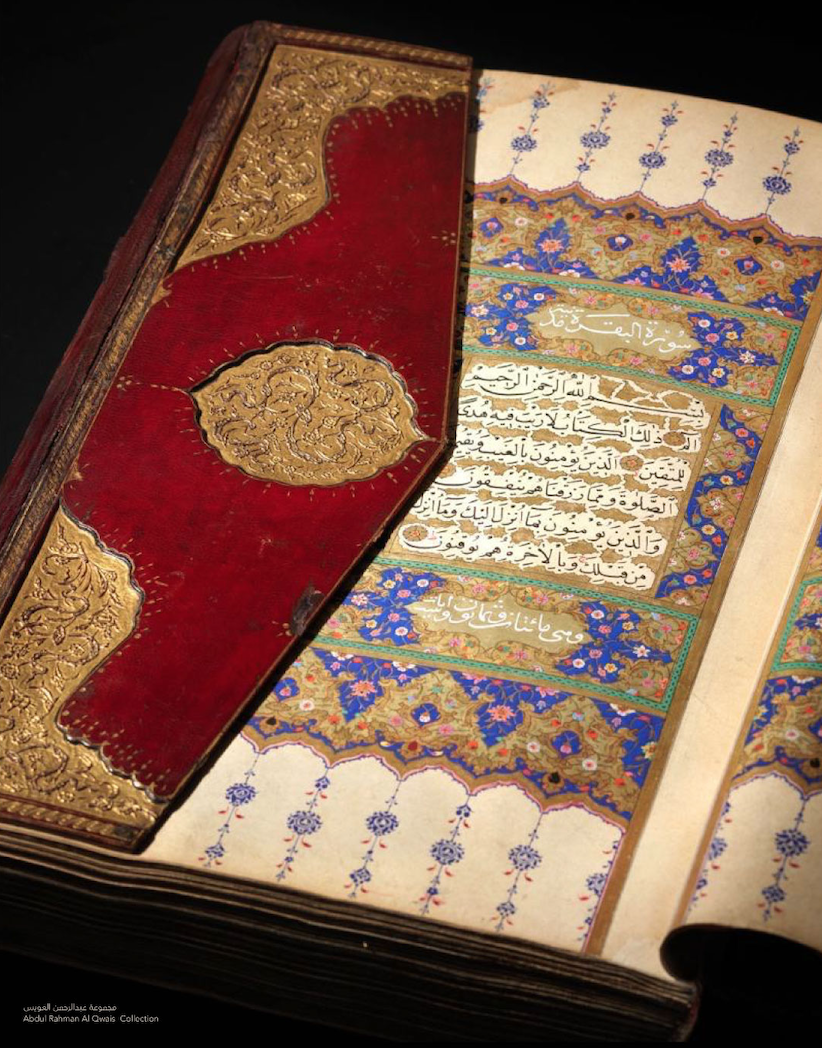 سورة البقرة
بسم الله الرحمن الرحيم
الم ذلك الكتاب لا ريب فيه هدى
للمتقين الذين يؤمنون بالغيب
الصلوة ومما رزقناهم ينفقون
والذين يؤمنون بما انزل اليك وما انزل
من قبلك وبالاخرة هم يوقنون
وهى مائتان وثمانون وست ايات
مجموعة عبدالرحمن العويس
Abdul Rahman Al Qwais Collection